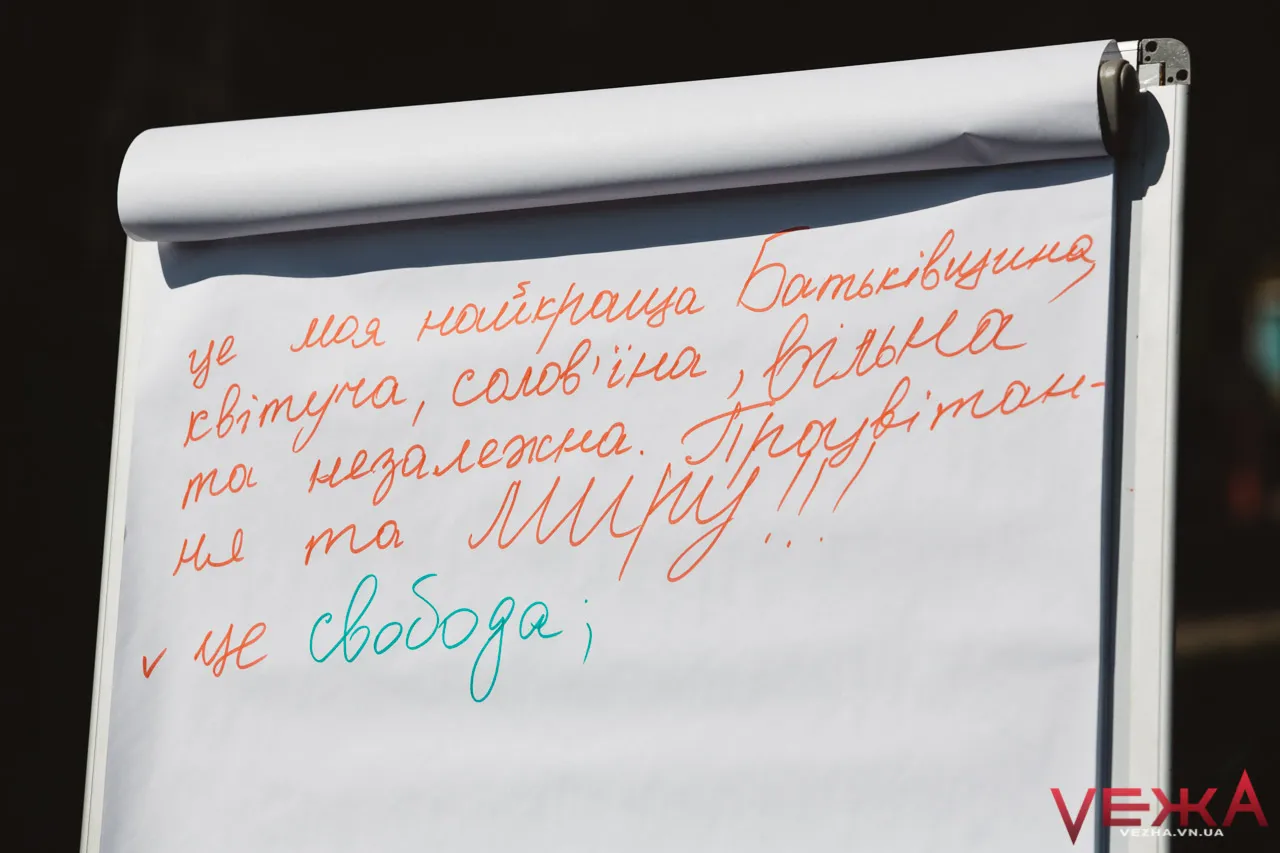 це моя найкраща Батьківщина,
квітуча, солов'їна, вільна
та незалежна. Процвітан-
ня та МИРУ!!!
✓ це свобода;
VEЖА
VEZHA.VN.UA